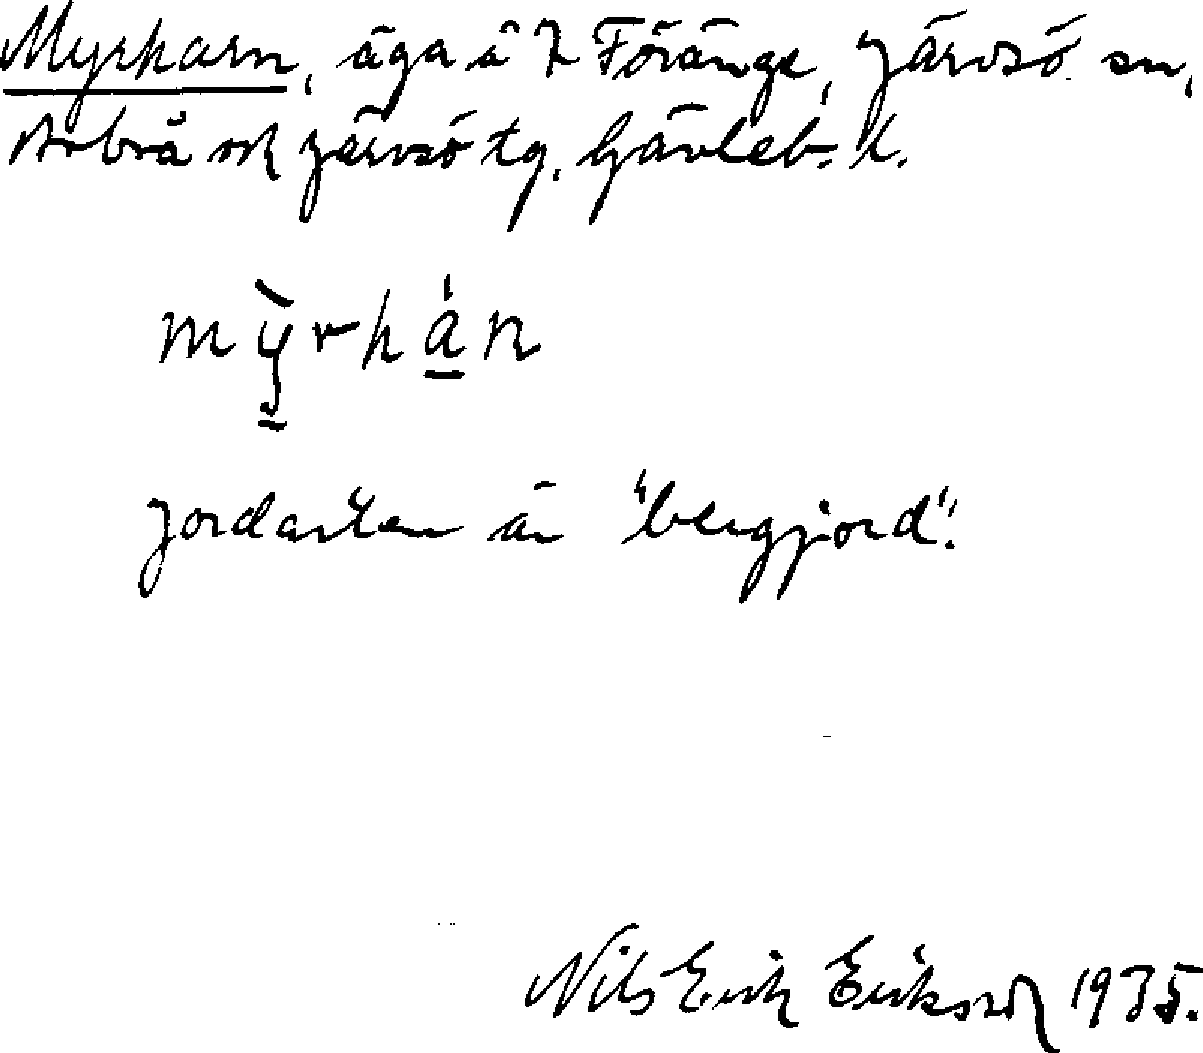 Myrharn, äga å Föränge, Järvsö sn,
Arbrå och Järvsö tg, Gävleb. l.
mỳrhán
Jordarten är "bergjord".
Nils Erik Eriksson 1935.